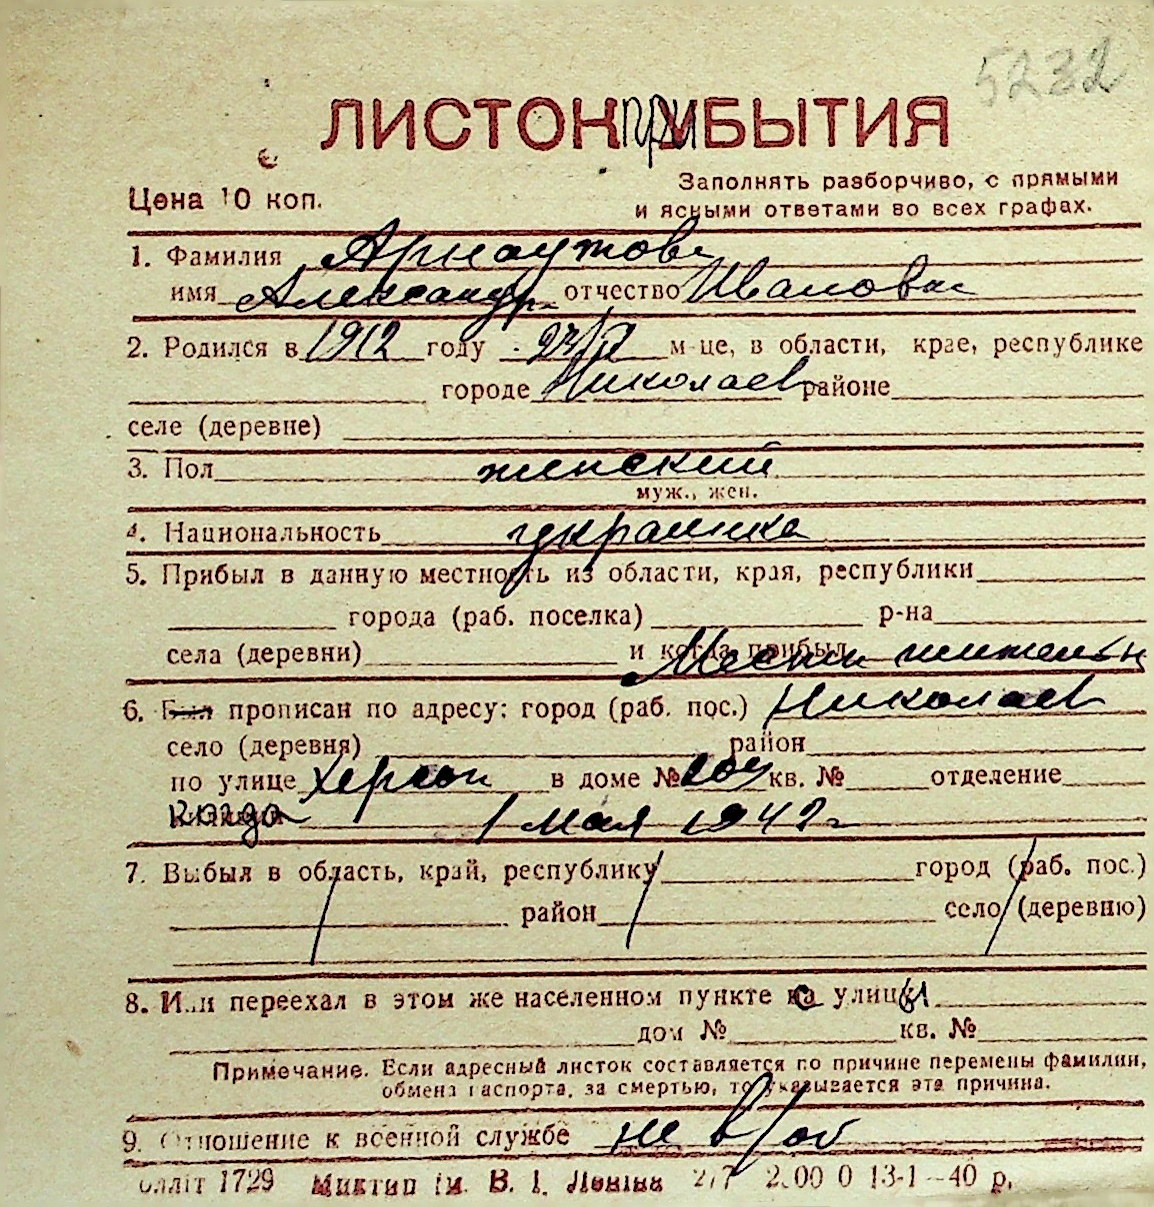 5232
ЛИСТОК при УБЫТИЯ
Цена 10 коп.
Заполнять разборчиво, с прямыми
и ясными ответами во всех графах.
1. Фамилия Арнаутова
имя Александр. отчество Ивановна
2. Родился в 1912 году 23/ м-це, в области, крае, республике
городе Николаев районе
селе (деревне)
3. Пол женский
муж., жен.
4. Национальность украинка
5. Прибыл в данную местность из области, края, республики
города (раб. поселка) р-на
села (деревни) и когда прибыл Местн жительн
6. Был прописан по адресу: город (раб. пос.) Николаев
село (деревня) район
по улице Херсон в доме № кв. № отделение
когда 1 мая 1942 г
7. Выбыл в область, край, республику город (раб. пос.)
район село (деревню)
8. Или переехал в этом же населенном пункте с улицы
дом № кв. №
Примечание. Если адресный листок составляется по причине перемены фамилии,
обмена паспорта, за смертью, то указывается эта причина.
9. Отношение к военной службе не в/об
блліт 1729 Миктип ім. В. І. Леніна 2/7 2.00 0 13-1—40 р.